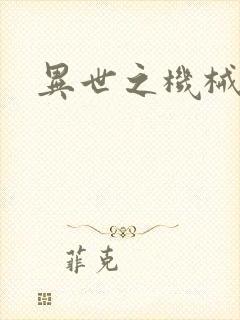 異世之機械
菲克